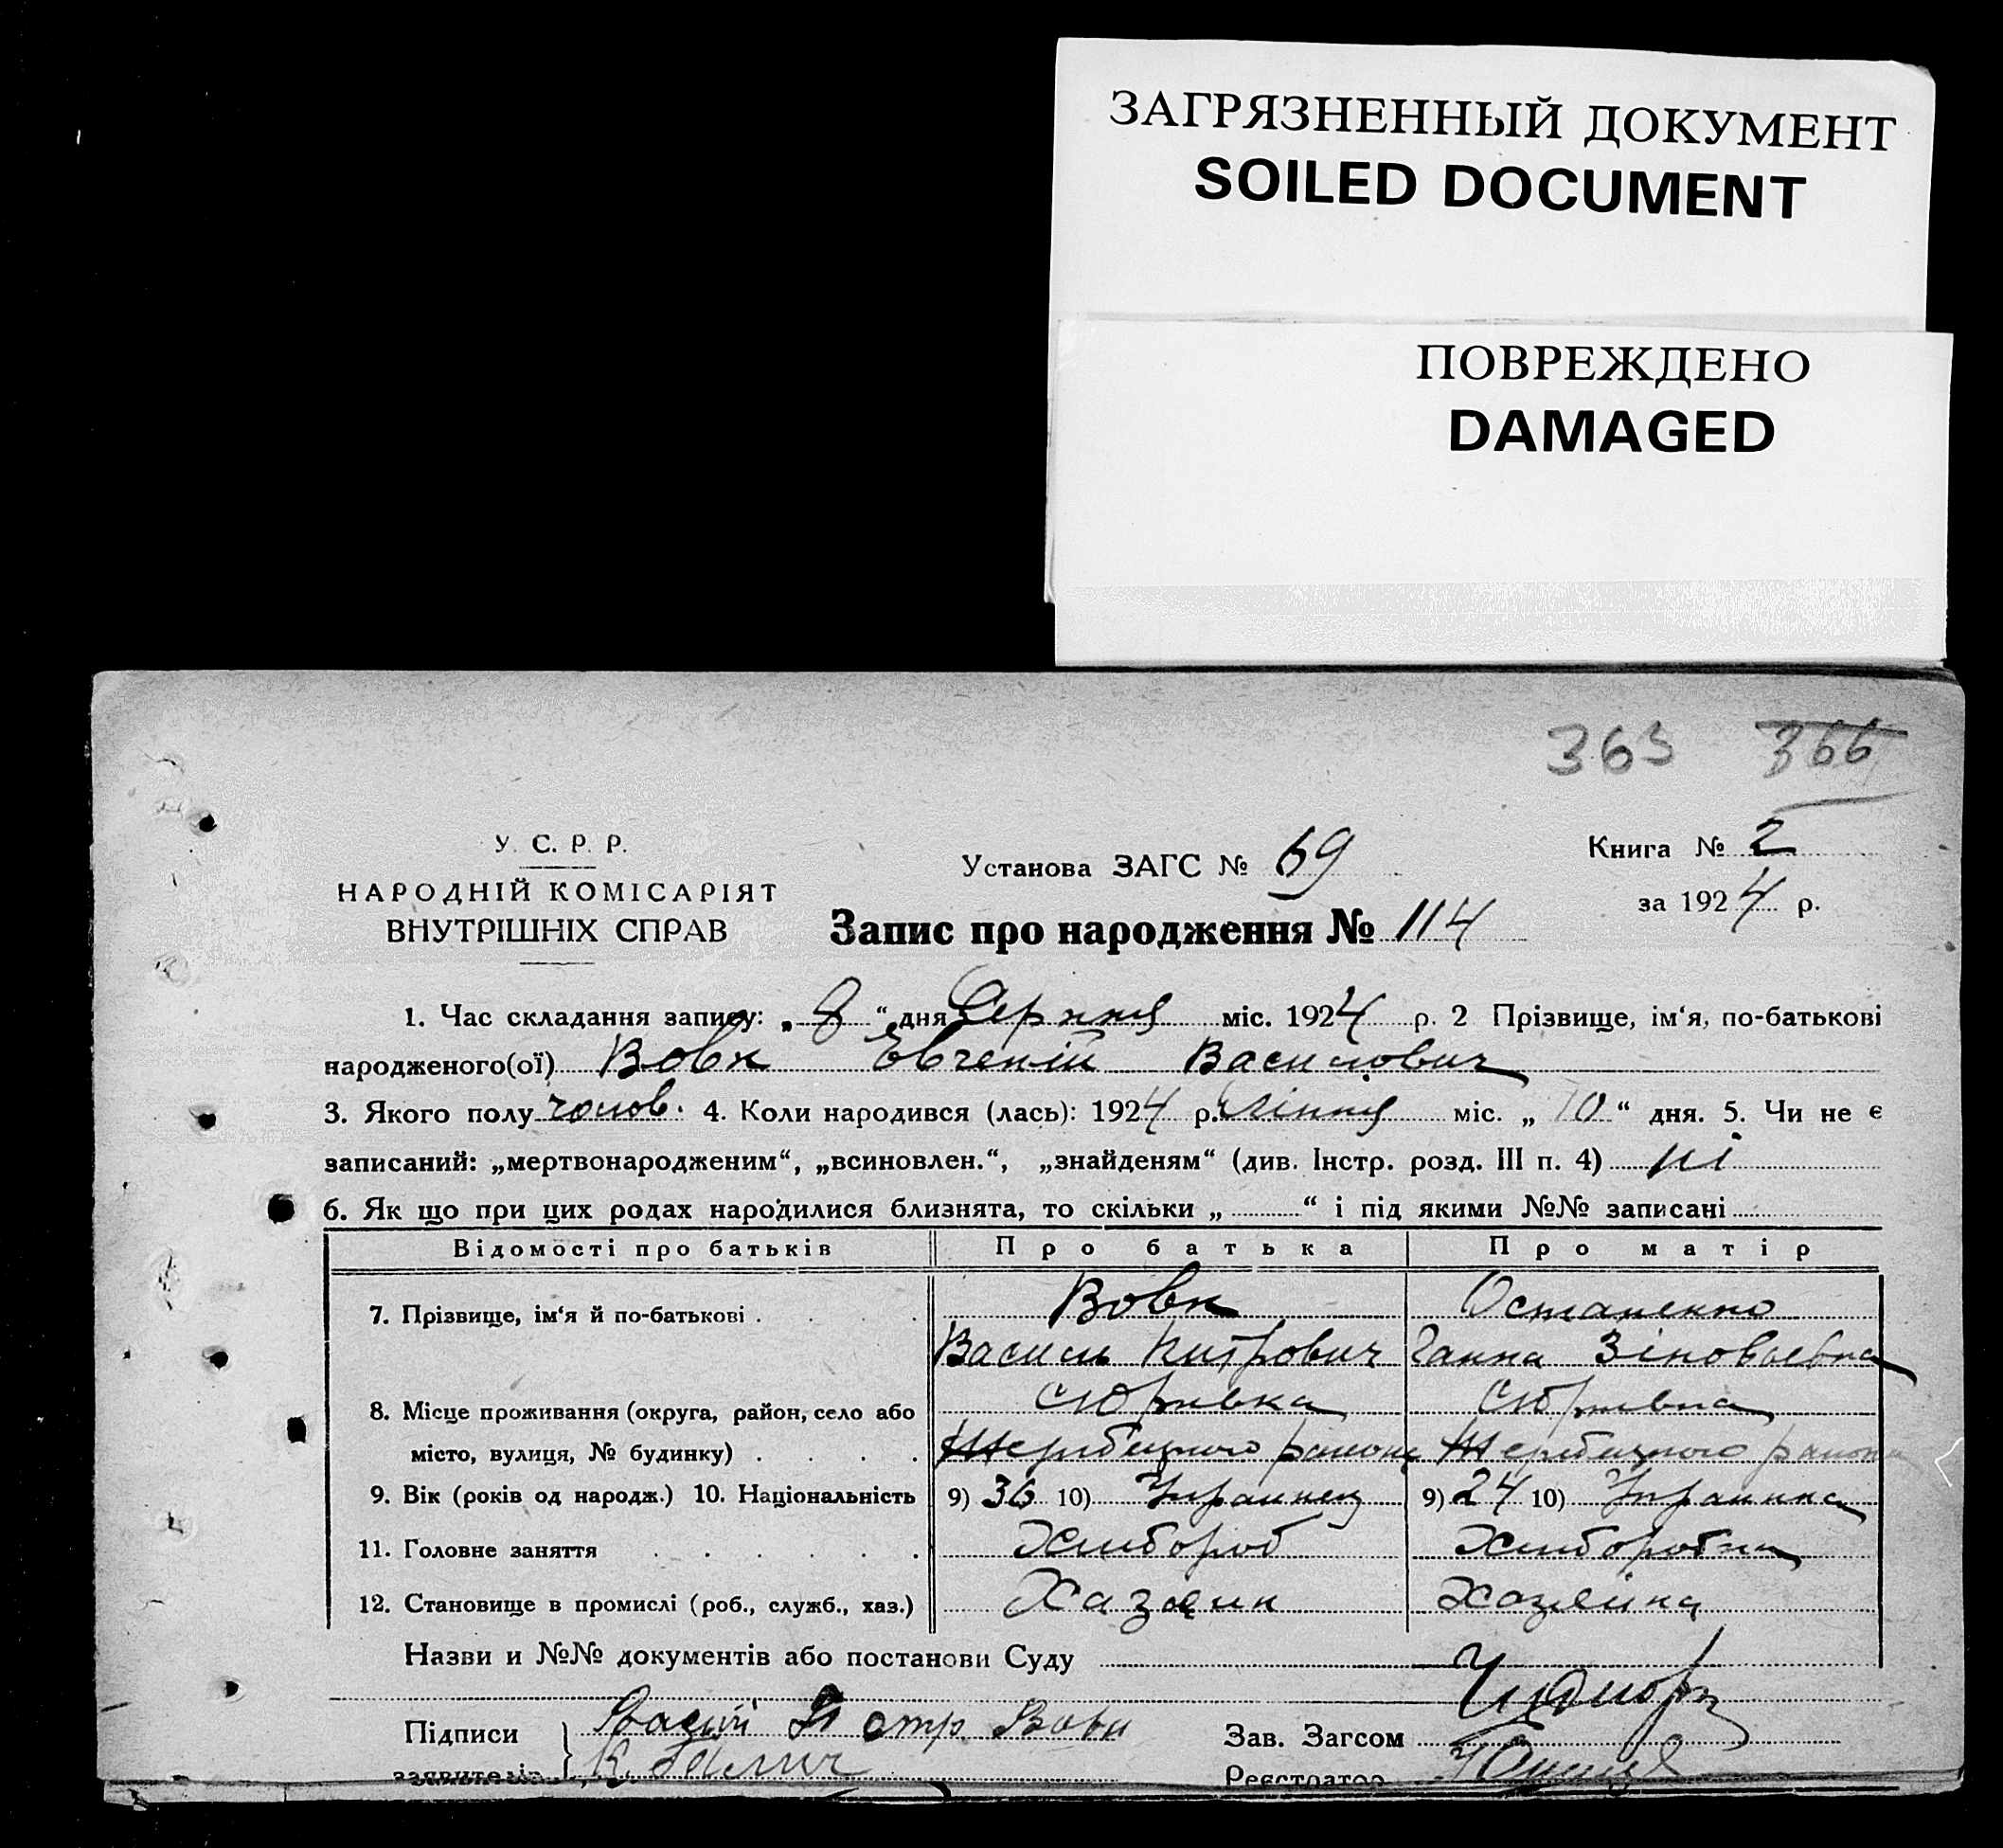 ЗАГРЯЗНЕННЫЙ ДОКУМЕНТ
SOILED DOCUMENT
ПОВРЕЖДЕНО
DAMAGED
363 366
У. С. Р. Р.
НАРОДНІЙ КОМІСАРІЯТ
ВНУТРІШНІХ СПРАВ
Установа ЗАГС № 69
Запис про народження № 114
Книга № 2
за 1924 р.
1. Час складання запису: „ 8 “ дня Серпня міс. 1924 р. 2 Прізвище, ім‘я, по-батькові
народженого(ої) Вовк Евгеній Василович
3. Якого полу чолов. 4. Коли народився (лась): 1924 р. Липня міс. „ 10 “ дня. 5. Чи не є
записаний: „мертвонародженим“, „всиновлен.“, „знайденям“ (див. Інстр. розд. III п. 4) ні
6. Як що при цих родах народилися близнята, то скільки „ “ і під якими №№ записані
Відомості про батьків Про батька Про матір
7. Прізвище, ім‘я й по-батькові . Вовк Остапенко
Василь Ганна Зіновьевна
8. Місце проживання (округа, район, село або
місто, вулиця, № будинку) . району району
9. Вік (років од народж.) 10. Національність 9) 36 10) Украинец 9) 24 10) Украинка
11. Головне заняття Хлибороб Хлиборобка
12. Становище в промислі (роб., служб., хаз.) Хазяин Хазяйка
Назви и №№ документів або постанови Суду
Підписи Петр. Вовк Зав. Загсом
заявителів К. Реєстратор